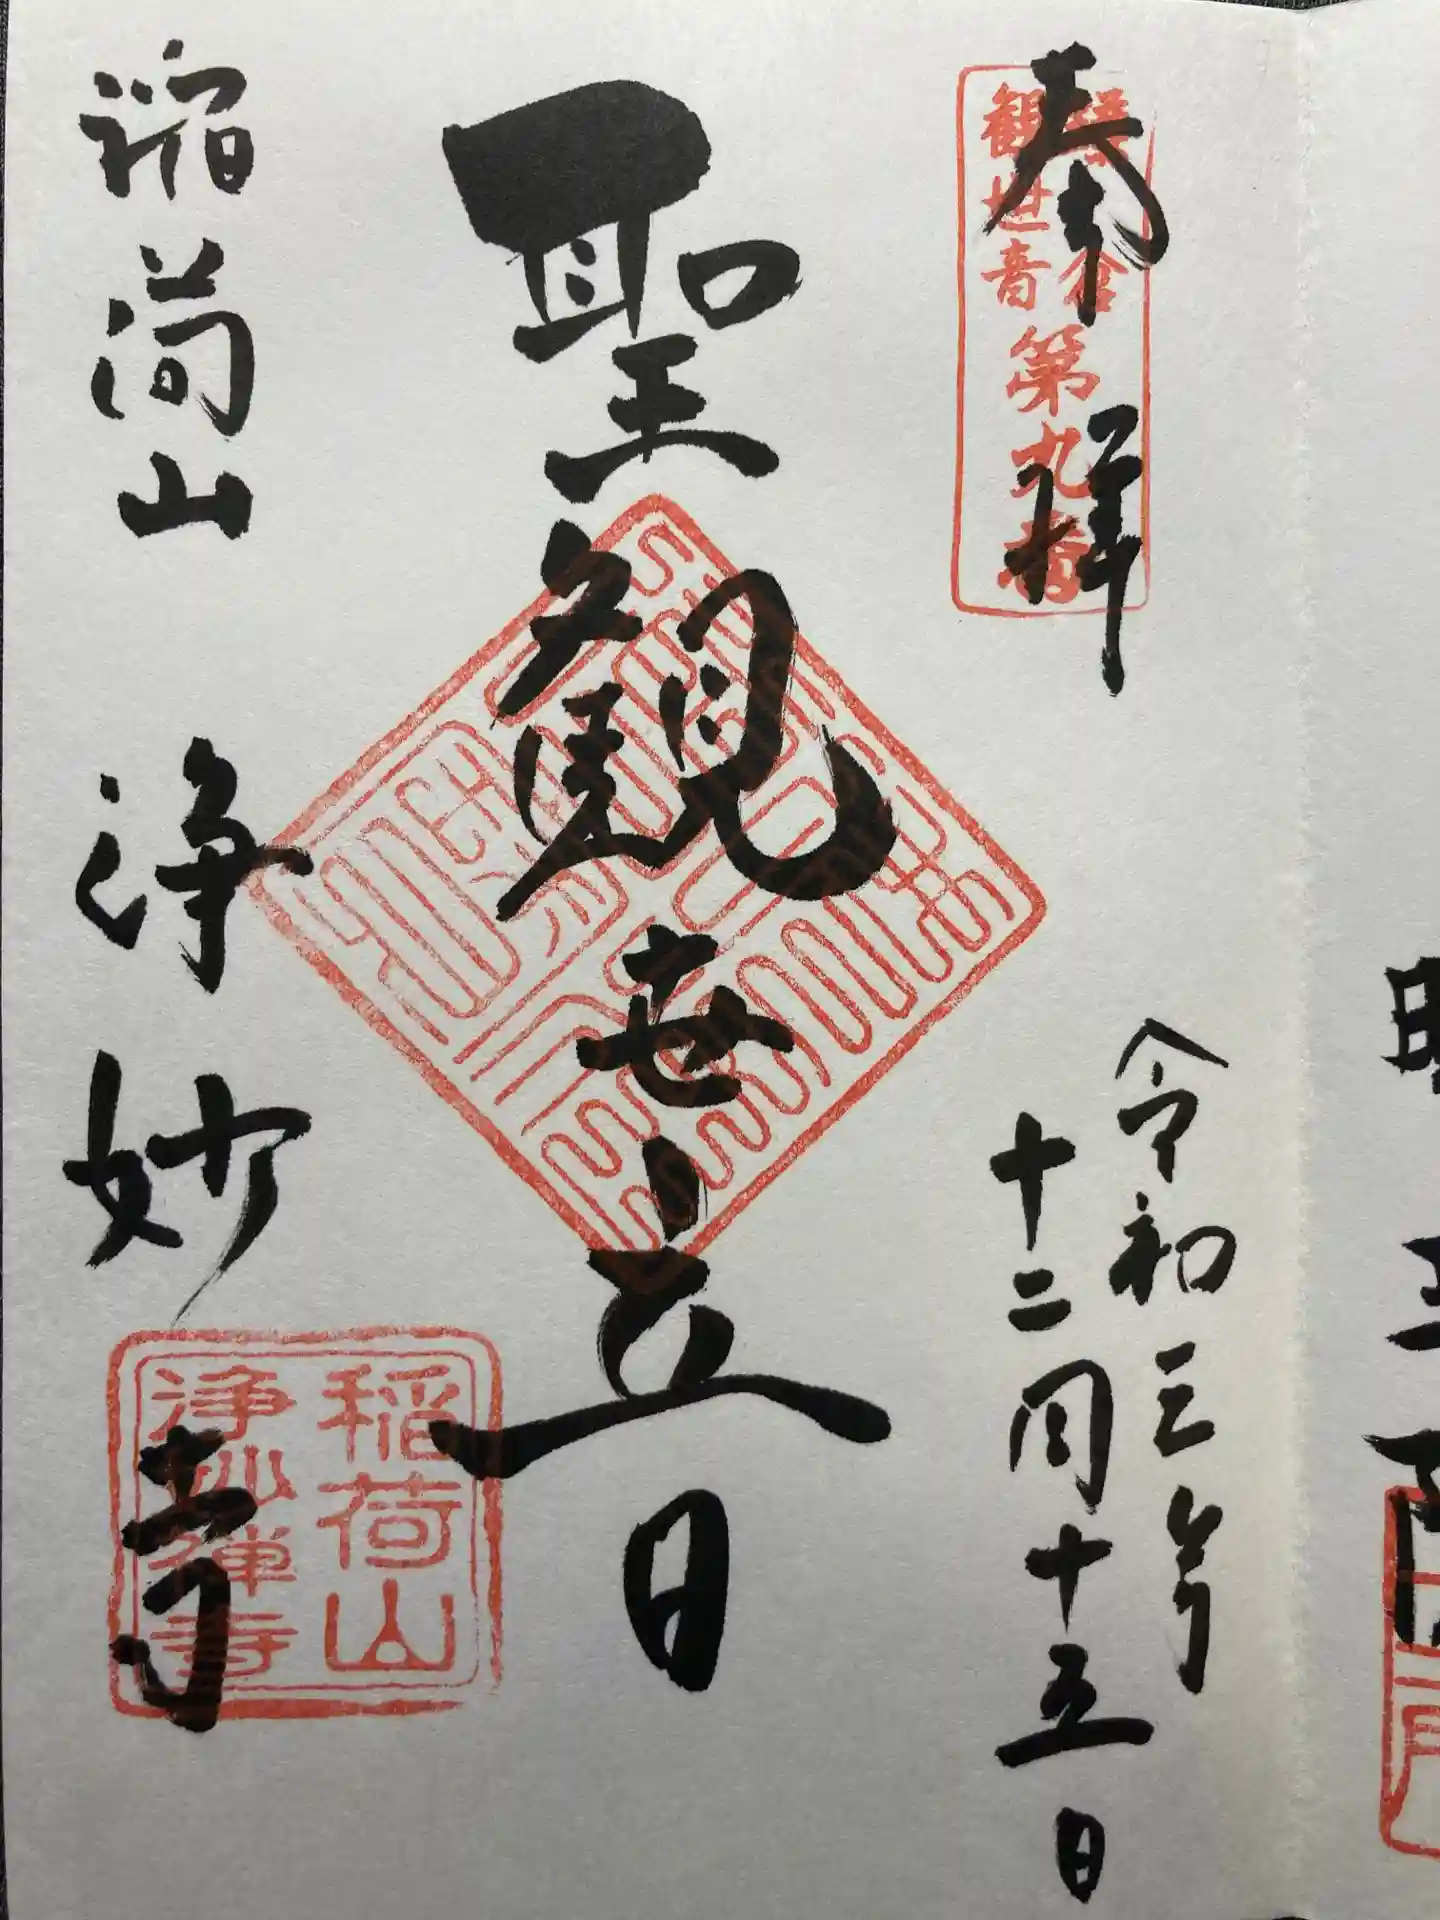 奉拝
鎌倉
観世音
第九番
令和三年
十二月十五日
聖観世音
稲荷山
浄妙寺
稲荷山
浄妙禅寺